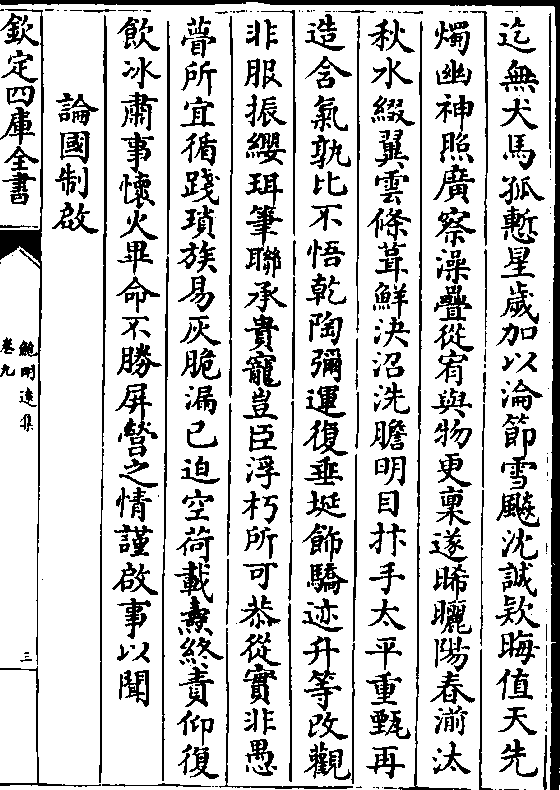 迄無犬馬孤慙星歲加以淪節雪飈沈誠欵晦值天先
燭幽神照廣察澡疊從宥與物更稟遂晞曬陽春湔汰
秋水綴翼雲條葺鮮決沼洗膽明目抃手太平重甄再
造含氣孰比不悟乾陶彌運復垂埏飾驕迹升等改觀
非服振纓珥筆聯承貴寵豈臣浮朽所可恭從實非愚
瞢所宜循踐瑣族易灰脆漏已迫空荷載燾終責仰復
飲冰肅事懷火畢命不勝屏營之情謹啟事以聞
論國制啟
欽定四庫全書
鮑明遠集
卷九
三